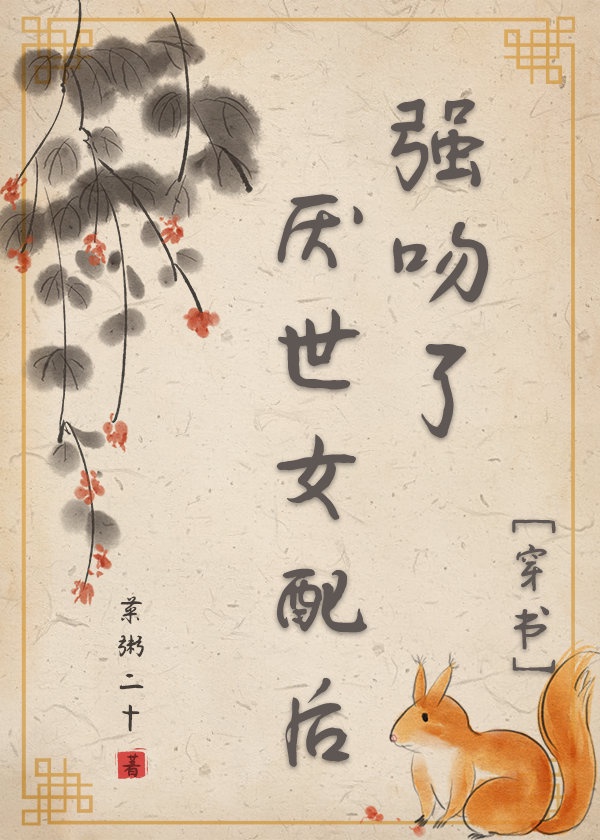 强吻了
厌世女配后
[穿书]
菜粥二十
著